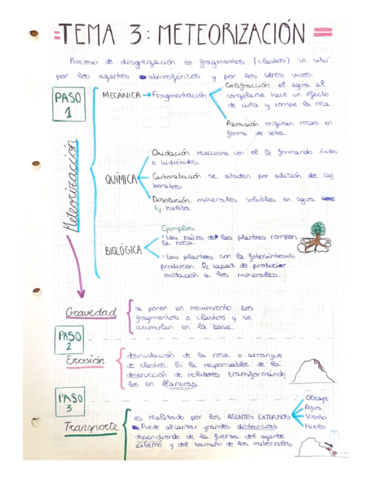 TEMA 3: METEORIZACIÓN
Proceso de disgregación en fragmentos (clastos) "in situ"
por los agentes atmosféricos y por los seres vivos.
PASO
1
Meteorización
MECÁNICA → Fragmentación
Gelifracción el agua al
congelarse hace un efecto
de cuña y rompe la roca.
Abrasión originan rocas en
forma de seta.
QUÍMICA
Oxidación reacciona con el O₂ formando óxidos
e hidróxidos.
Carbonatación se añaden por adición de car
bonatos.
Disolución minerales solubles en agua
Ej. halita
BIOLÓGICA
Ejemplos
Las raíces de las plantas rompen
la roca.
Las plantas con la fotosíntesis
producen O₂ capaz de producir
oxidación a los minerales.
Gravedad
se ponen en movimiento los
fragmentos o clastos y se
acumulan en la base.
PASO
2
Erosión
denudación de la roca o arranque
de clastos. Es la responsable de la
destrucción de relieves transformándo
los en llanuras.
PASO
3
Transporte
es realizado por los AGENTES EXTERNOS
Oleaje
Agua
Viento
Hielo
Puede alcanzar grandes distancias
dependiendo de la fuerza del agente
externo y del tamaño de los materiales